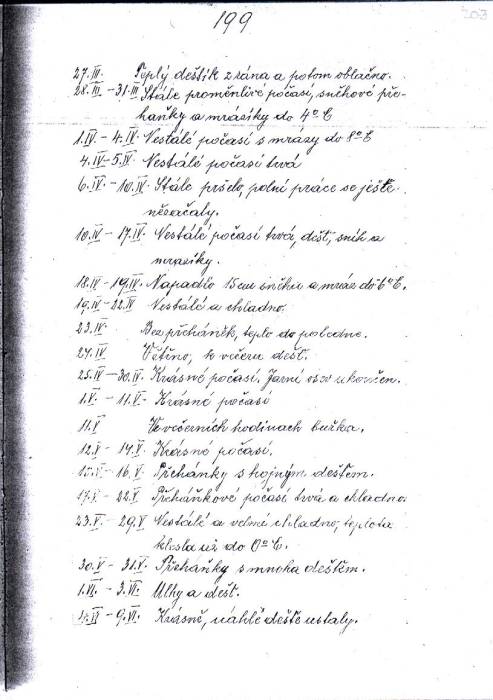 199
203
27.III. Teplý deštík z rána a potom oblačno.
28.III - 31.III Stále proměnlivé počasí, sněhové pře-
háňky a mrazíky do 4° C
1.IV - 4.IV Nestálé počasí s mrazy do 8° C
4.IV - 5.IV. Nestálé počasí trvá
6.IV - 10.IV. Stále pršelo, polní práce se ještě
nezačaly.
10.IV - 17.IV. Nestálé počasí trvá, déšť, sníh a
mrazíky.
18.IV - 19.IV. Napadlo 15 cm sněhu a mráz do 6° C.
19.IV - 22.IV Nestálé a chladno.
23.IV. Bez přeháněk, teplo do poledne.
24.IV. Větrno, k večeru déšť.
25.IV - 30.IV. Krásné počasí. Jarní osev ukončen.
1.V. - 11.V. Krásné počasí
11.V Ve večerních hodinách bouřka.
12.V - 14.V. Krásné počasí.
15.V - 16.V. Přeháňky s hojným deštěm.
17.V - 22.V Přeháňkové počasí trvá a chladno.
23.V. - 29.V Nestálé a velmi chladno, teplota
klesla už do 0° C.
30.V - 31.V. Přeháňky s mnoha deštěm.
1.VI. - 3.VI. Mlhy a déšť.
4.VI - 9.VI. Krásně, náhlé deště ustaly.